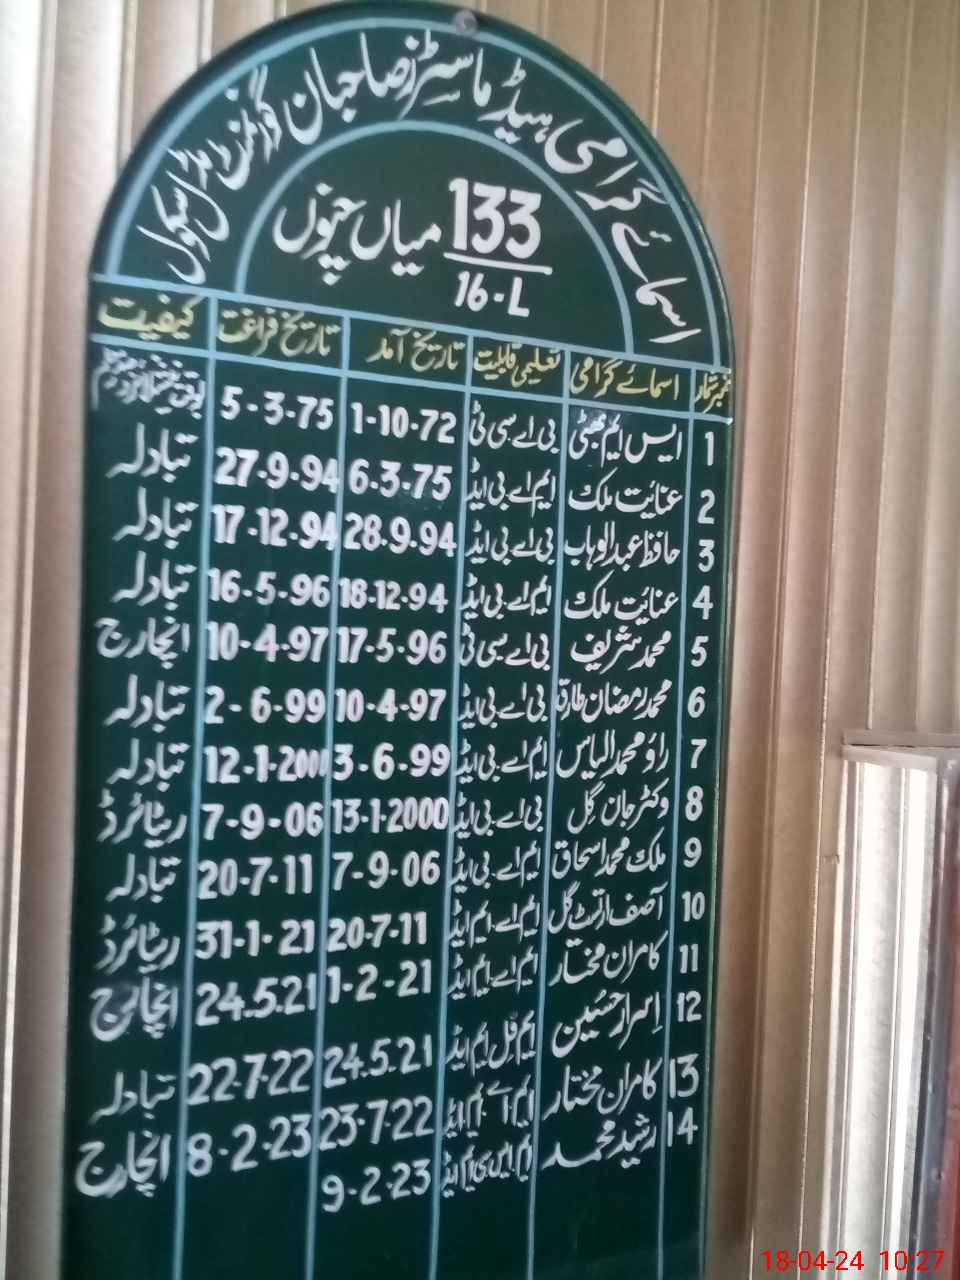 اسمائے گرامی ہیڈ ماسٹرز صاحبان گورنمنٹ مڈل سکول
133 میاں چنوں
16-L
نمبر شمار اسمائے گرامی تعلیمی قابلیت تاریخ آمد تاریخ فراغت کیفیت
1 ایس ایم بھٹی بی اے سی ٹی 1-10-72 5-3-75
2 عنائیت ملک ایم اے بی ایڈ 6.3.75 27.9.94 تبادلہ
3 حافظ عبدالوہاب بی اے بی ایڈ 28.9.94 17.12.94 تبادلہ
4 عنائیت ملک ایم اے بی ایڈ 18.12.94 16-5-96 تبادلہ
5 محمد شریف بی اے سی ٹی 17-5-96 10-4-97 انچارج
6 محمد رمضان طارق بی اے بی ایڈ 10-4-97 2-6-99 تبادلہ
7 راؤ محمد الیاس ایم اے بی ایڈ 3-6-99 12-1-2000 تبادلہ
8 وکٹر جان گل بی اے بی ایڈ 13-1-2000 7-9-06 ریٹائرڈ
9 ملک محمد اسحاق ایم اے بی ایڈ 7-9-06 20-7-11 تبادلہ
10 آصف ارنسٹ گل ایم اے ایم ایڈ 20-7-11 31-1-21 ریٹائرڈ
11 کامران مختار ایم اے ایم ایڈ 1-2-21 24.5.21 انچارج
12 اسرار حسین ایم فل ایم ایڈ 24.5.21 22-7-22 تبادلہ
13 کامران مختار ایم اے ایم ایڈ 23-7-22 8-2-23 انچارج
14 رشید محمد ایم ایس سی ایم ایڈ 9-2-23
18-04-24 10:27